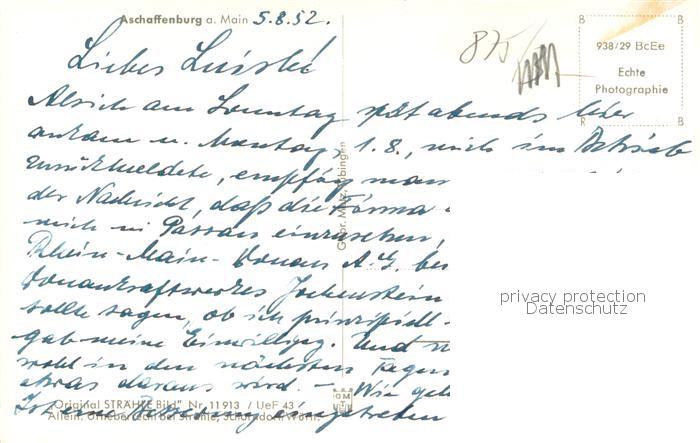 Aschaffenburg a. Main 5.8.52.
875
938/29 BcEe
Echte
Photographie
B B
R B
Liebes Luisle
Als ich am Sonntag spät abends hier
ankam u. Montag, 1.8., mich im Betrieb
zurückmeldete, empfing man
der Nachricht, daß die Firma
mich in Passau einzusetzen,
Rhein-Main-Donau A.G. bei
Donaukraftwerkes Jochenstein
sollte sagen, ob ich prinzipiell
gab meine Einwilligg. Und
wohl in den nächsten Tagen
etwas daraus wird. – Wie geh
Ist eine Besserung eingetreten
Gebr. Metz, Tübingen
"Original STRÄHLE Bild" Nr. 11913 / UeF 43
Allein. Urheberrecht bei Strähle, Schorndorf/Württ.
GMT
privacy protection
Datenschutz